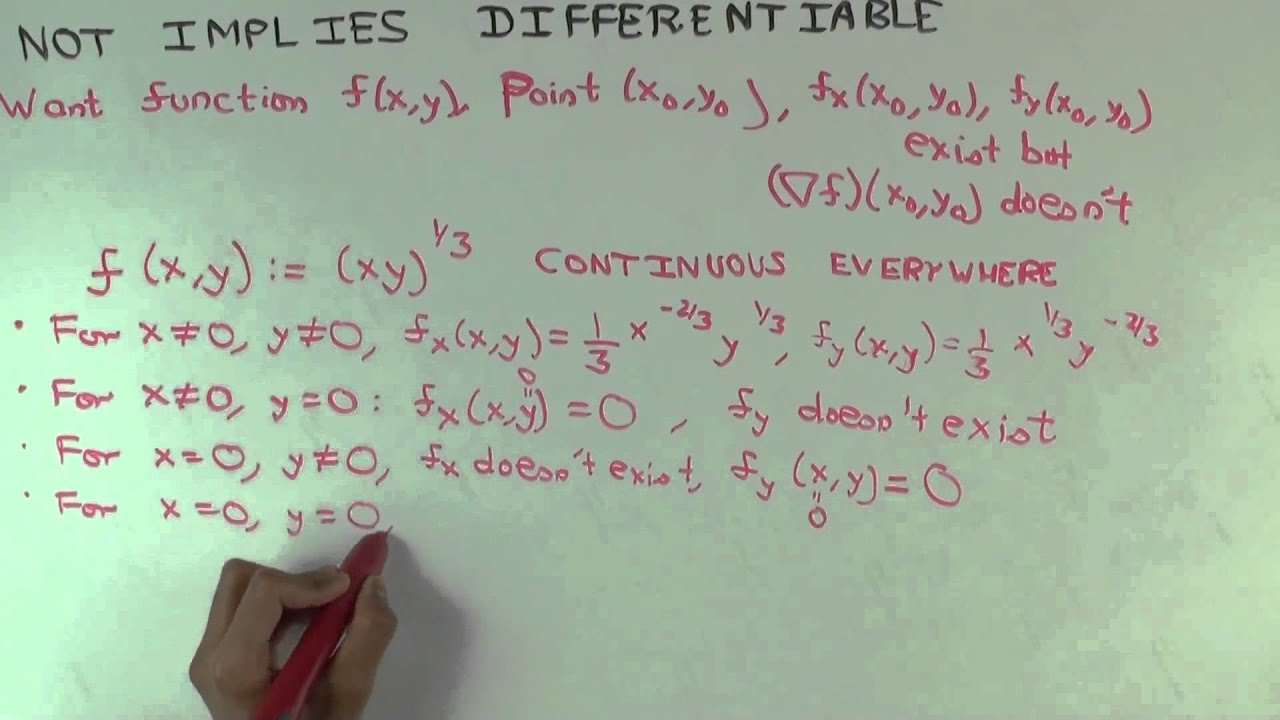 NOT IMPLIES DIFFERENTIABLE
Want function f(x,y), Point (x₀,y₀), fₓ(x₀,y₀), f_y(x₀,y₀)
exist but
(∇f)(x₀,y₀) doesn't
f(x,y) := (xy)^1/3 CONTINUOUS EVERYWHERE
• For x≠0, y≠0, fₓ(x,y) = 1/3 x^-2/3 y^1/3, f_y(x,y) = 1/3 x^1/3 y^-2/3
• For x≠0, y=0: fₓ(x,y) = 0, f_y doesn't exist
0 =
• For x=0, y≠0, fₓ doesn't exist, f_y(x,y) = 0
= 0
• For x=0, y=0,